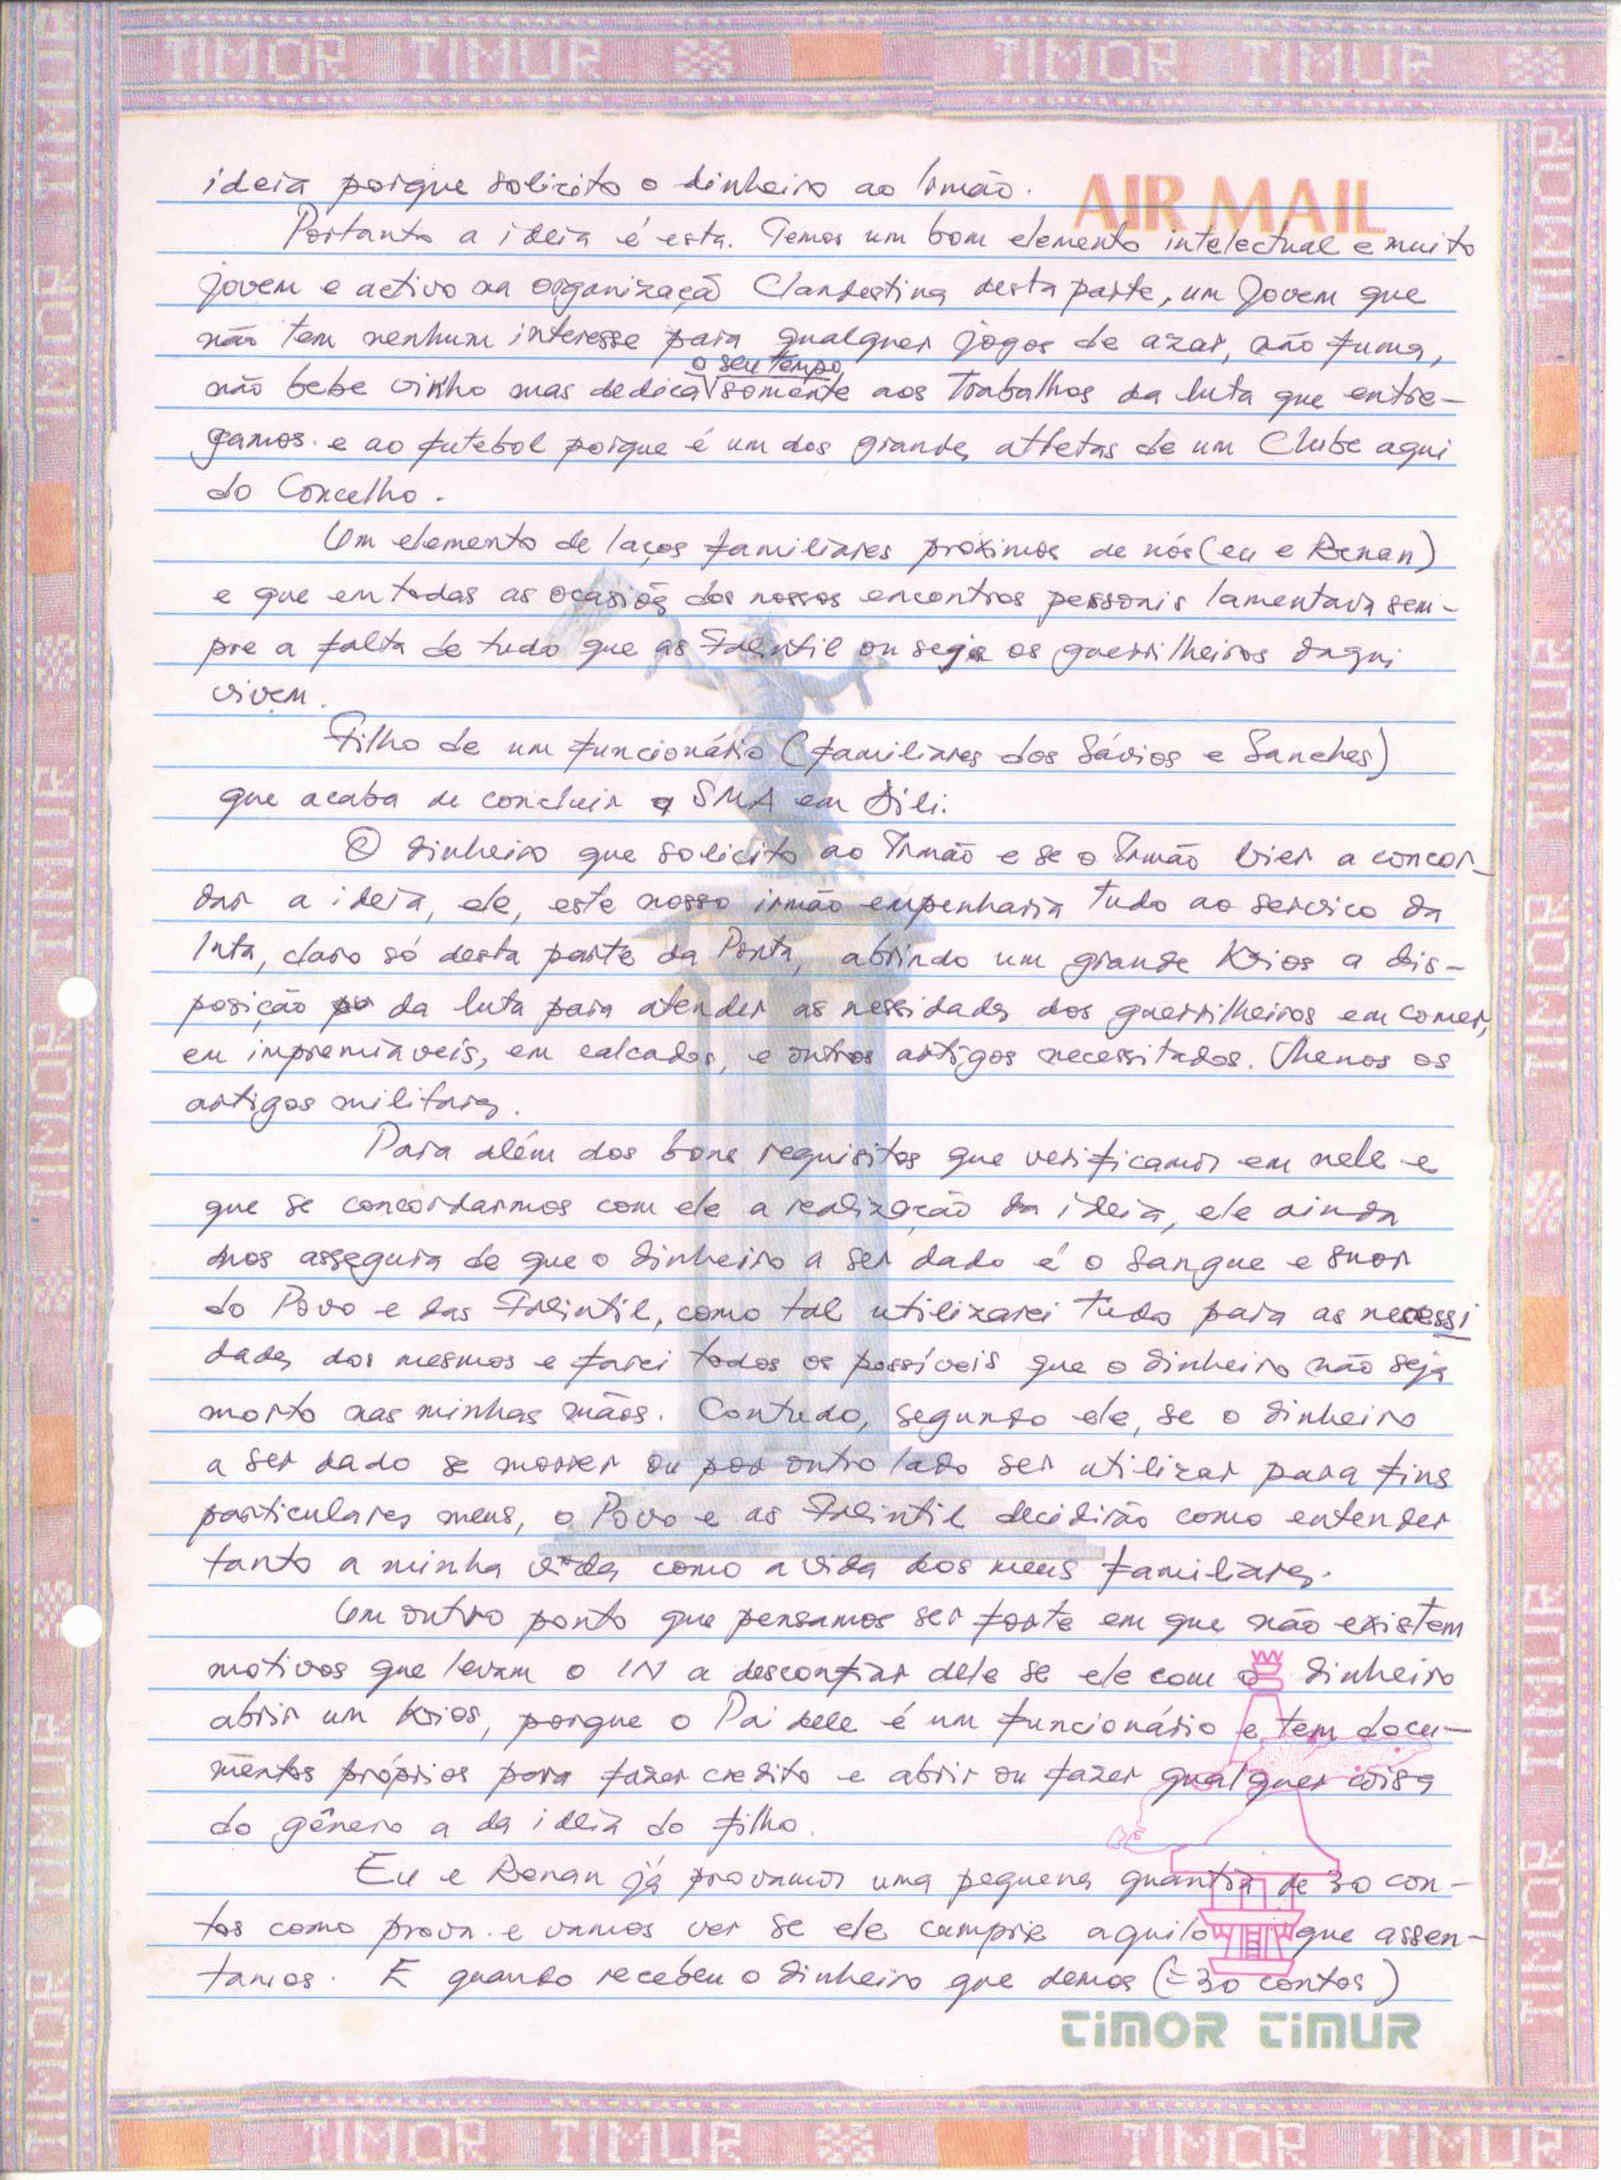 TIMOR TIMUR TIMOR TIMUR
AIR MAIL
ideia porque solicito o dinheiro ao Irmão.
Portanto a ideia é esta. Temos um bom elemento intelectual e muito
jovem e activo na organização Clandestina desta parte, um jovem que
não tem nenhum interesse para qualquer jogos de azar, não fuma,
o seu tempo
não bebe vinho mas dedica somente aos Trabalhos da luta que entre-
gamos e ao futebol porque é um dos grandes atletas de um Clube aqui
do Concelho.
Um elemento de laços familiares próximos de nós (eu e Renan)
e que em todas as ocasiões dos nossos encontros pessoais lamentava sem-
pre a falta de tudo que as Falintil ou seja os guerrilheiros daqui
vivem.
Filho de um funcionário (familiares dos Sávios e Sanches)
que acaba de concluir a SMA em Díli.
O dinheiro que solicito ao Irmão e se o Irmão vier a concor-
dar a ideia, ele, este nosso irmão empenharia tudo ao serviço da
luta, claro só desta parte da Ponta, abrindo um grande Kios a dis-
posição da luta para atender as nessidades dos guerrilheiros em comer,
em impremiáveis, em calcados, e outros artigos necessitados. Menos os
artigos militares.
Para além dos bons requisitos que verificamos em nele e
que se concordarmos com ele a realização da ideia, ele ainda
nos assegura de que o dinheiro a ser dado é o Sangue e suor
do Povo e das Falintil, como tal utilizarei tudo para as necessi
dades dos mesmos e farei todos os possíveis que o dinheiro não seja
morto nas minhas mãos. Contudo, segundo ele, se o dinheiro
a ser dado se morrer ou por outro lado ser utilizar para fins
particulares meus, o Povo e as Falintil decidirão como entender
tanto a minha vida como a vida dos meus familiares.
Um outro ponto que pensamos ser forte em que não existem
motivos que levam o IN a desconfiar dele se ele com o dinheiro
abrir um Kios, porque o Pai dele é um funcionário e tem docu-
mentos próprios para fazer credito e abrir ou fazer qualquer coisa
do gênero a da ideia do filho.
Eu e Renan já provamos uma pequena quantia de 30 con-
tos como prova e vamos ver se ele cumpre aquilo que assen-
tamos. E quando recebeu o dinheiro que demos (=30 contos)
TIMOR TIMUR
TIMOR TIMUR TIMOR TIMUR